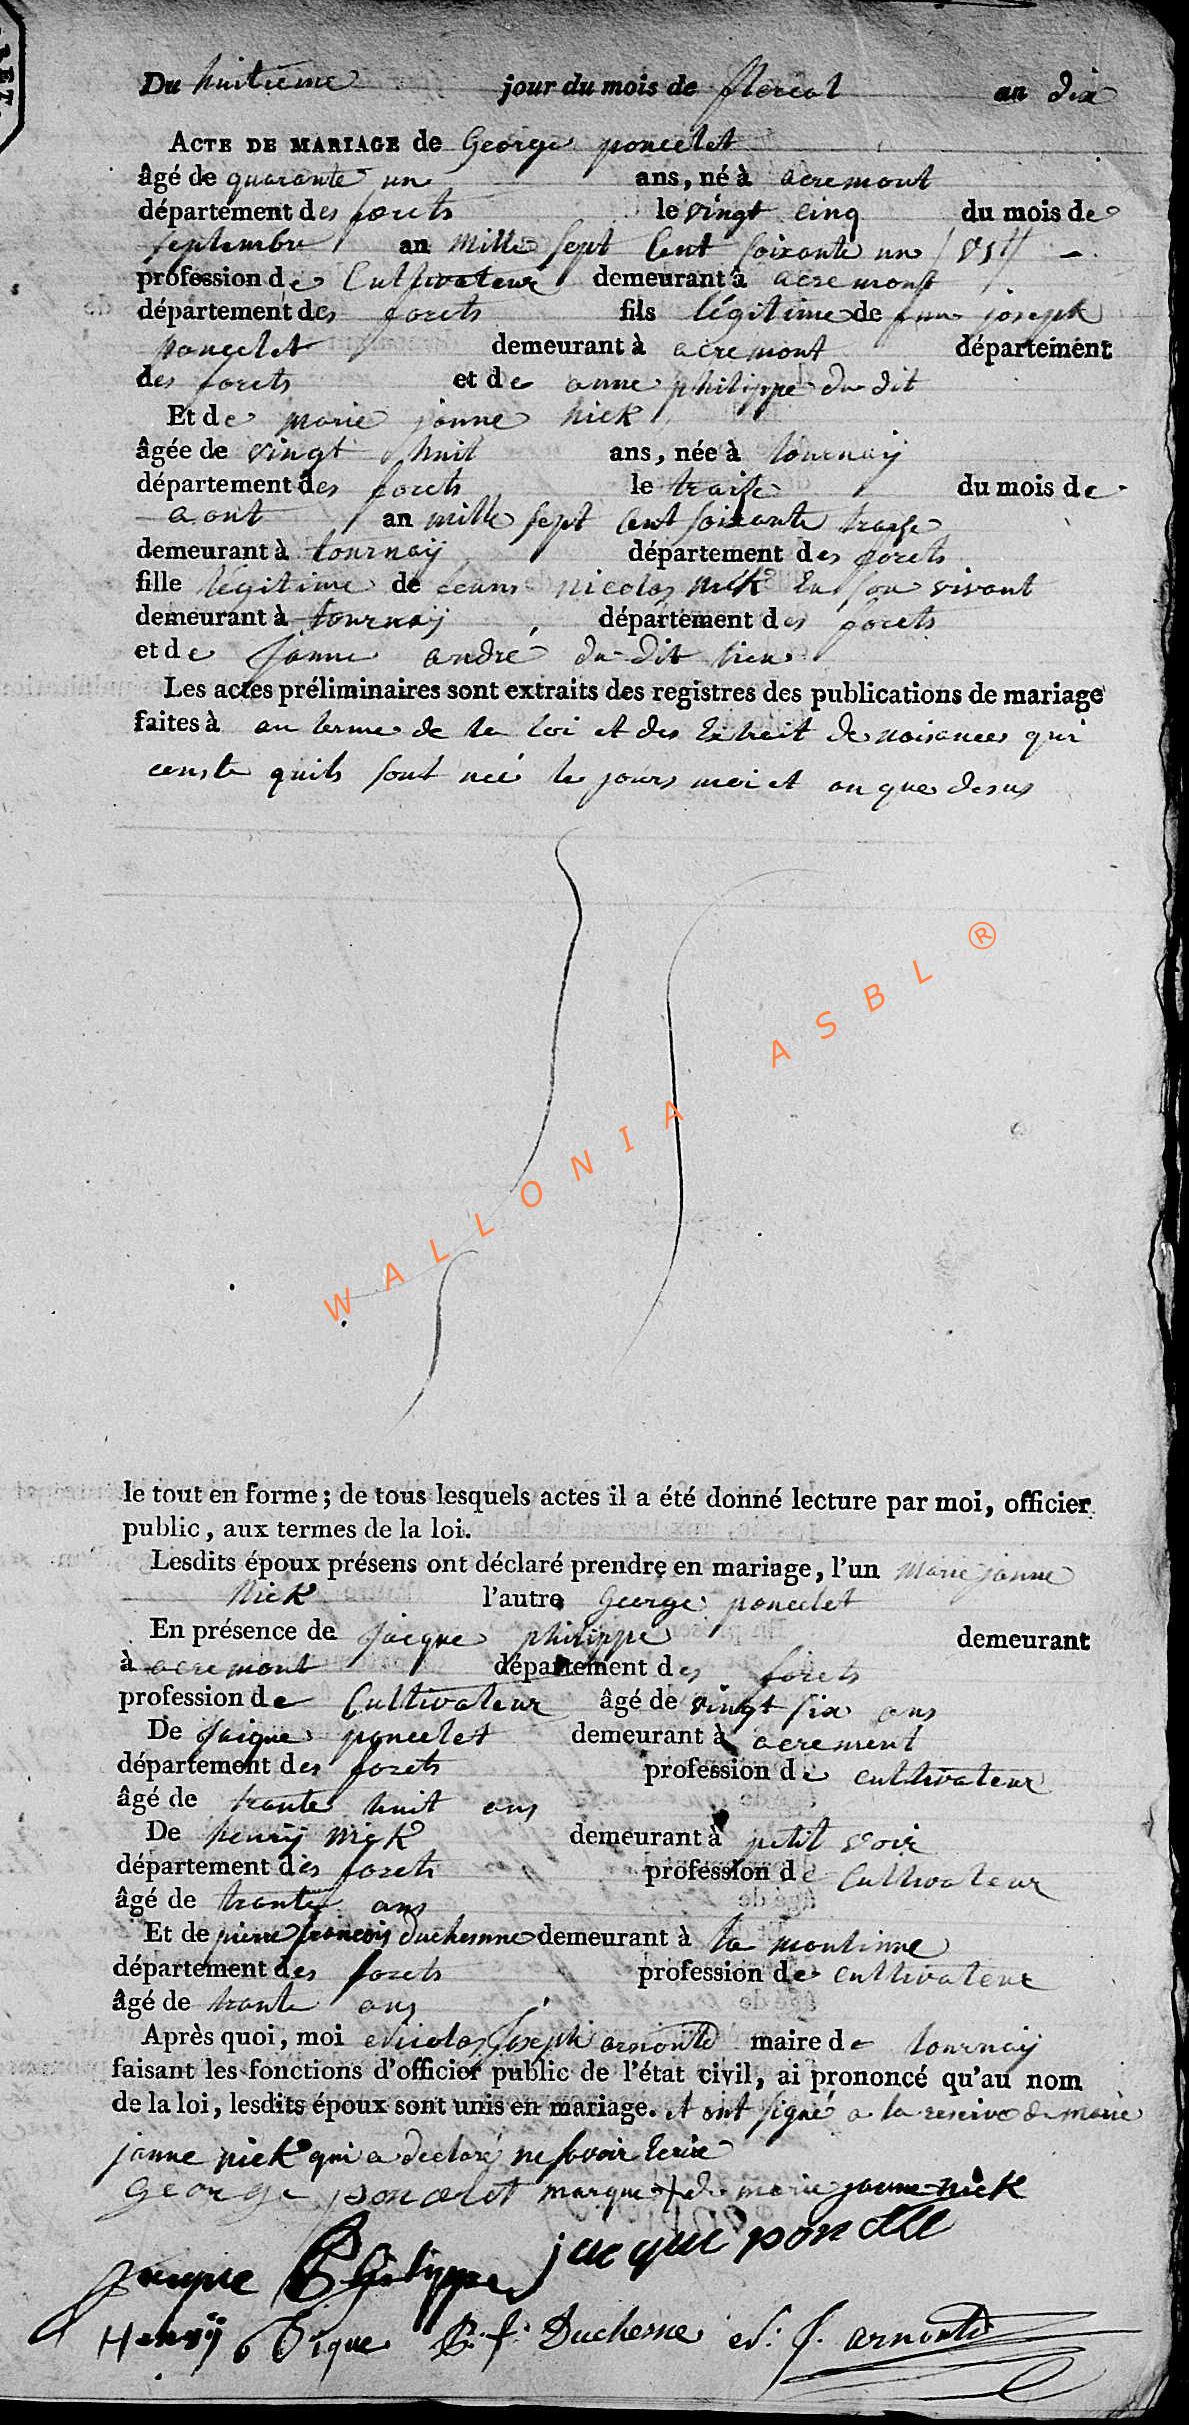 Du huitieme jour du mois de floreal an dix
ACTE DE MARIAGE de George poncelet
âgé de quarante un ans, né à acremont
département des forets le vingt cinq du mois de
septembre an mille sept Cent soixante un
profession de Cultivateur demeurant à acremont
département des forets fils légitime de feux joseph
poncelet demeurant à acremont département
des forets et de anne philippe du dit
Et de marie janne nick
âgée de vingt huit ans, née à tournay
département des forets le traise du mois de
aout an mille sept Cent soixante traise
demeurant à tournaÿ département des forets
fille légitime de nicolas nick En son vivant
demeurant à tournaÿ département des forets
et de janne andré du dit lieu
Les actes préliminaires sont extraits des registres des publications de mariage
faites à au terme de la loi et des Extrait de naisances qui
conste quils sont neé le jours moi et an que desus
WALLONIA ASBL ®
le tout en forme ; de tous lesquels actes il a été donné lecture par moi, officier
public, aux termes de la loi.
Lesdits époux présens ont déclaré prendre en mariage, l'un marie janne
Nick l'autre George poncelet
En présence de jacque philippe demeurant
à acremont département des forets
profession de Cultivateur âgé de vingt six ans
De jacque poncelet demeurant à acremont
département des forets profession de cultivateur
âgé de trante huit ans
De henrÿ Nick demeurant à petit voir
département des forets profession de Cultivateur
âgé de trante ans
Et de pierre francois duchesnne demeurant à la moulinne
département des forets profession de cultivateur
âgé de trante ans
Après quoi, moi Nicolas Joseph arnould maire de tournaÿ
faisant les fonctions d'officier public de l'état civil, ai prononcé qu'au nom
de la loi, lesdits époux sont unis en mariage. et ont signé a la reserve de marie
janne nick qui a declaré ne savoir Ecrire
George poncelet marque + de marie janne nick
jacque poncelle
jacque Philippe
Henrÿ Nique P: f: Duchesne N: J. arnould